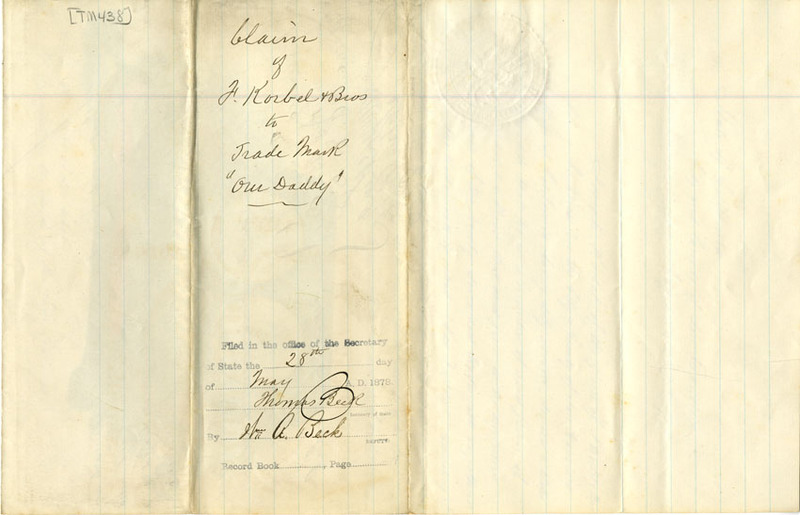 [TM438]
Claim
of
F. Korbel & Bros
to
Trade Mark
"Our Daddy"
Filed in the office of the Secretary
of State the 28th day
of May A.D. 1878.
Thomas Beck
Secretary of State
By Wm A. Beck
DEPUTY.
Record Book , Page